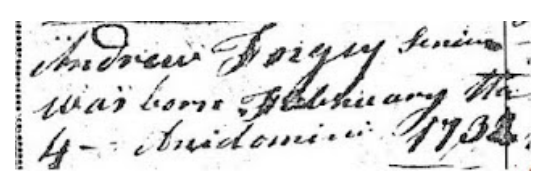 Andrew Forgey Senior
was born February the
4 - Anidomini 1732